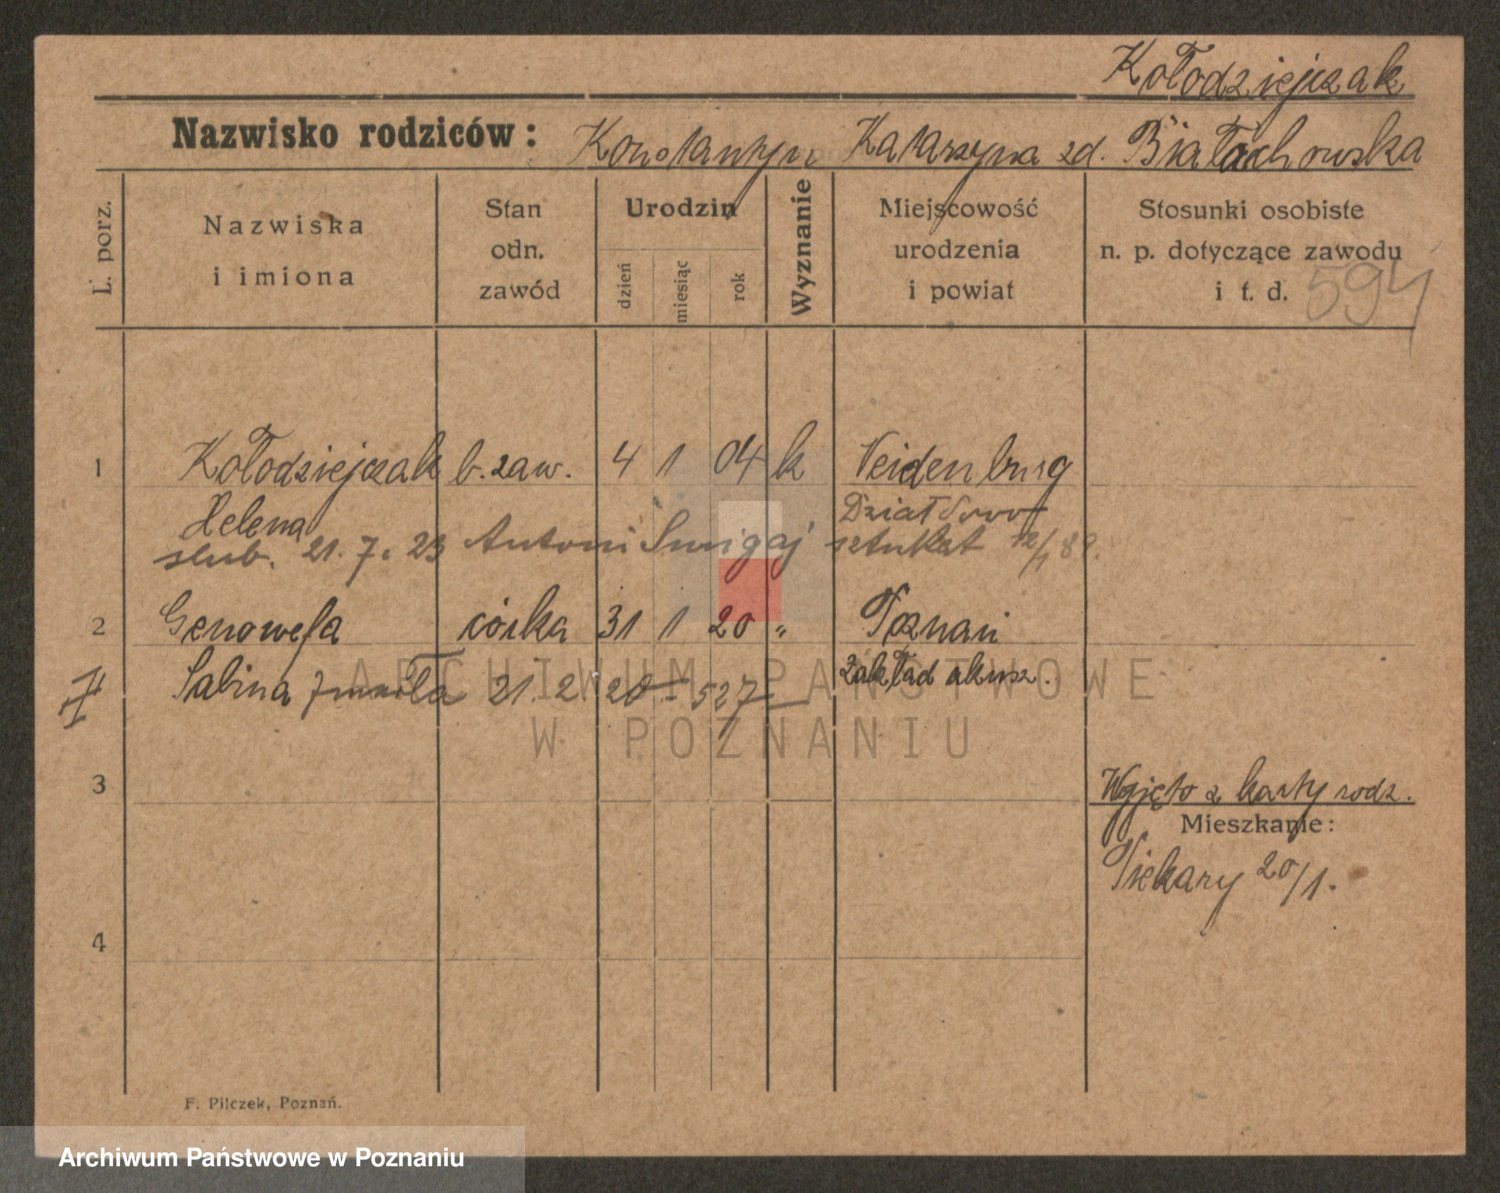 Kołodziejczak
Nazwisko rodziców: Konstantyn Katarzyna zd. Białachowska
L. porz.
Nazwiska
i imiona
Stan
odn.
zawód
Urodzin
dzień
miesiąc
rok
Wyznanie
Miejscowość
urodzenia
i powiat
Stosunki osobiste
n. p. dotyczące zawodu
i t. d.
594
1 Kołodziejczak b. zaw. 4 1 04 k Neidenburg
Helena Działdowo
slub. 21. 7. 23 Antoni Smigaj sztukat
2 Genowefa córka 31 1 20 " Poznań
Sabina zmarła 21. 2. 20 527 Zakład akusz.
3
Wyjęto z karty rodz.
Mieszkanie:
Piekary 20/1.
4
F. Pilczek, Poznań.
ARCHIWUM PAŃSTWOWE
W POZNANIU
Archiwum Państwowe w Poznaniu